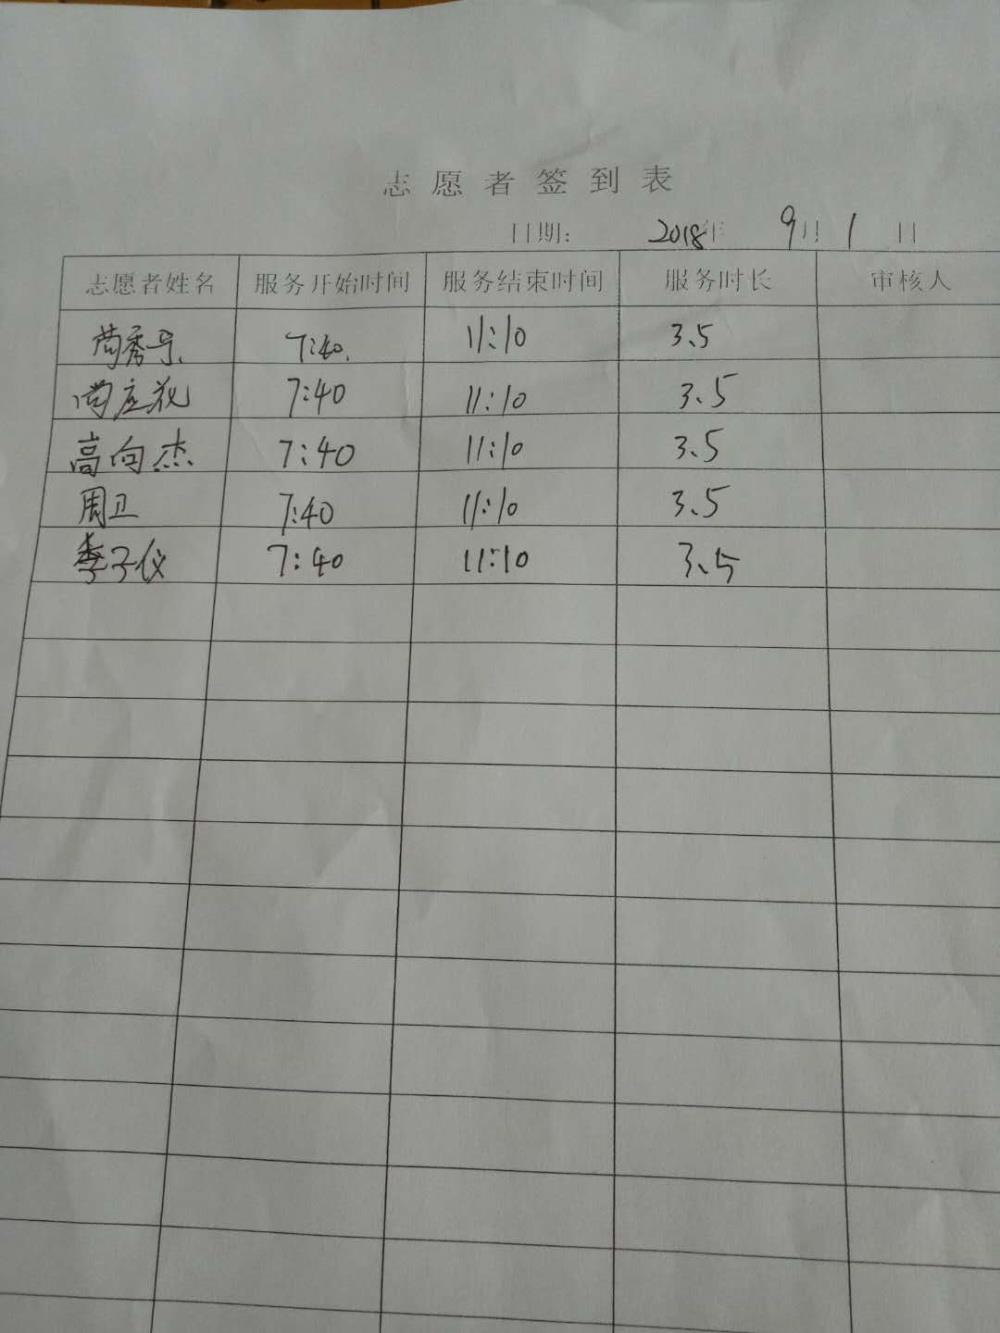 志愿者签到表
日期： 2018年 9月 1 日
志愿者姓名 服务开始时间 服务结束时间 服务时长 审核人
7:40 11:10 3.5
7:40 11:10 3.5
高向杰 7:40 11:10 3.5
周卫 7:40 11:10 3.5
李子仪 7:40 11:10 3.5